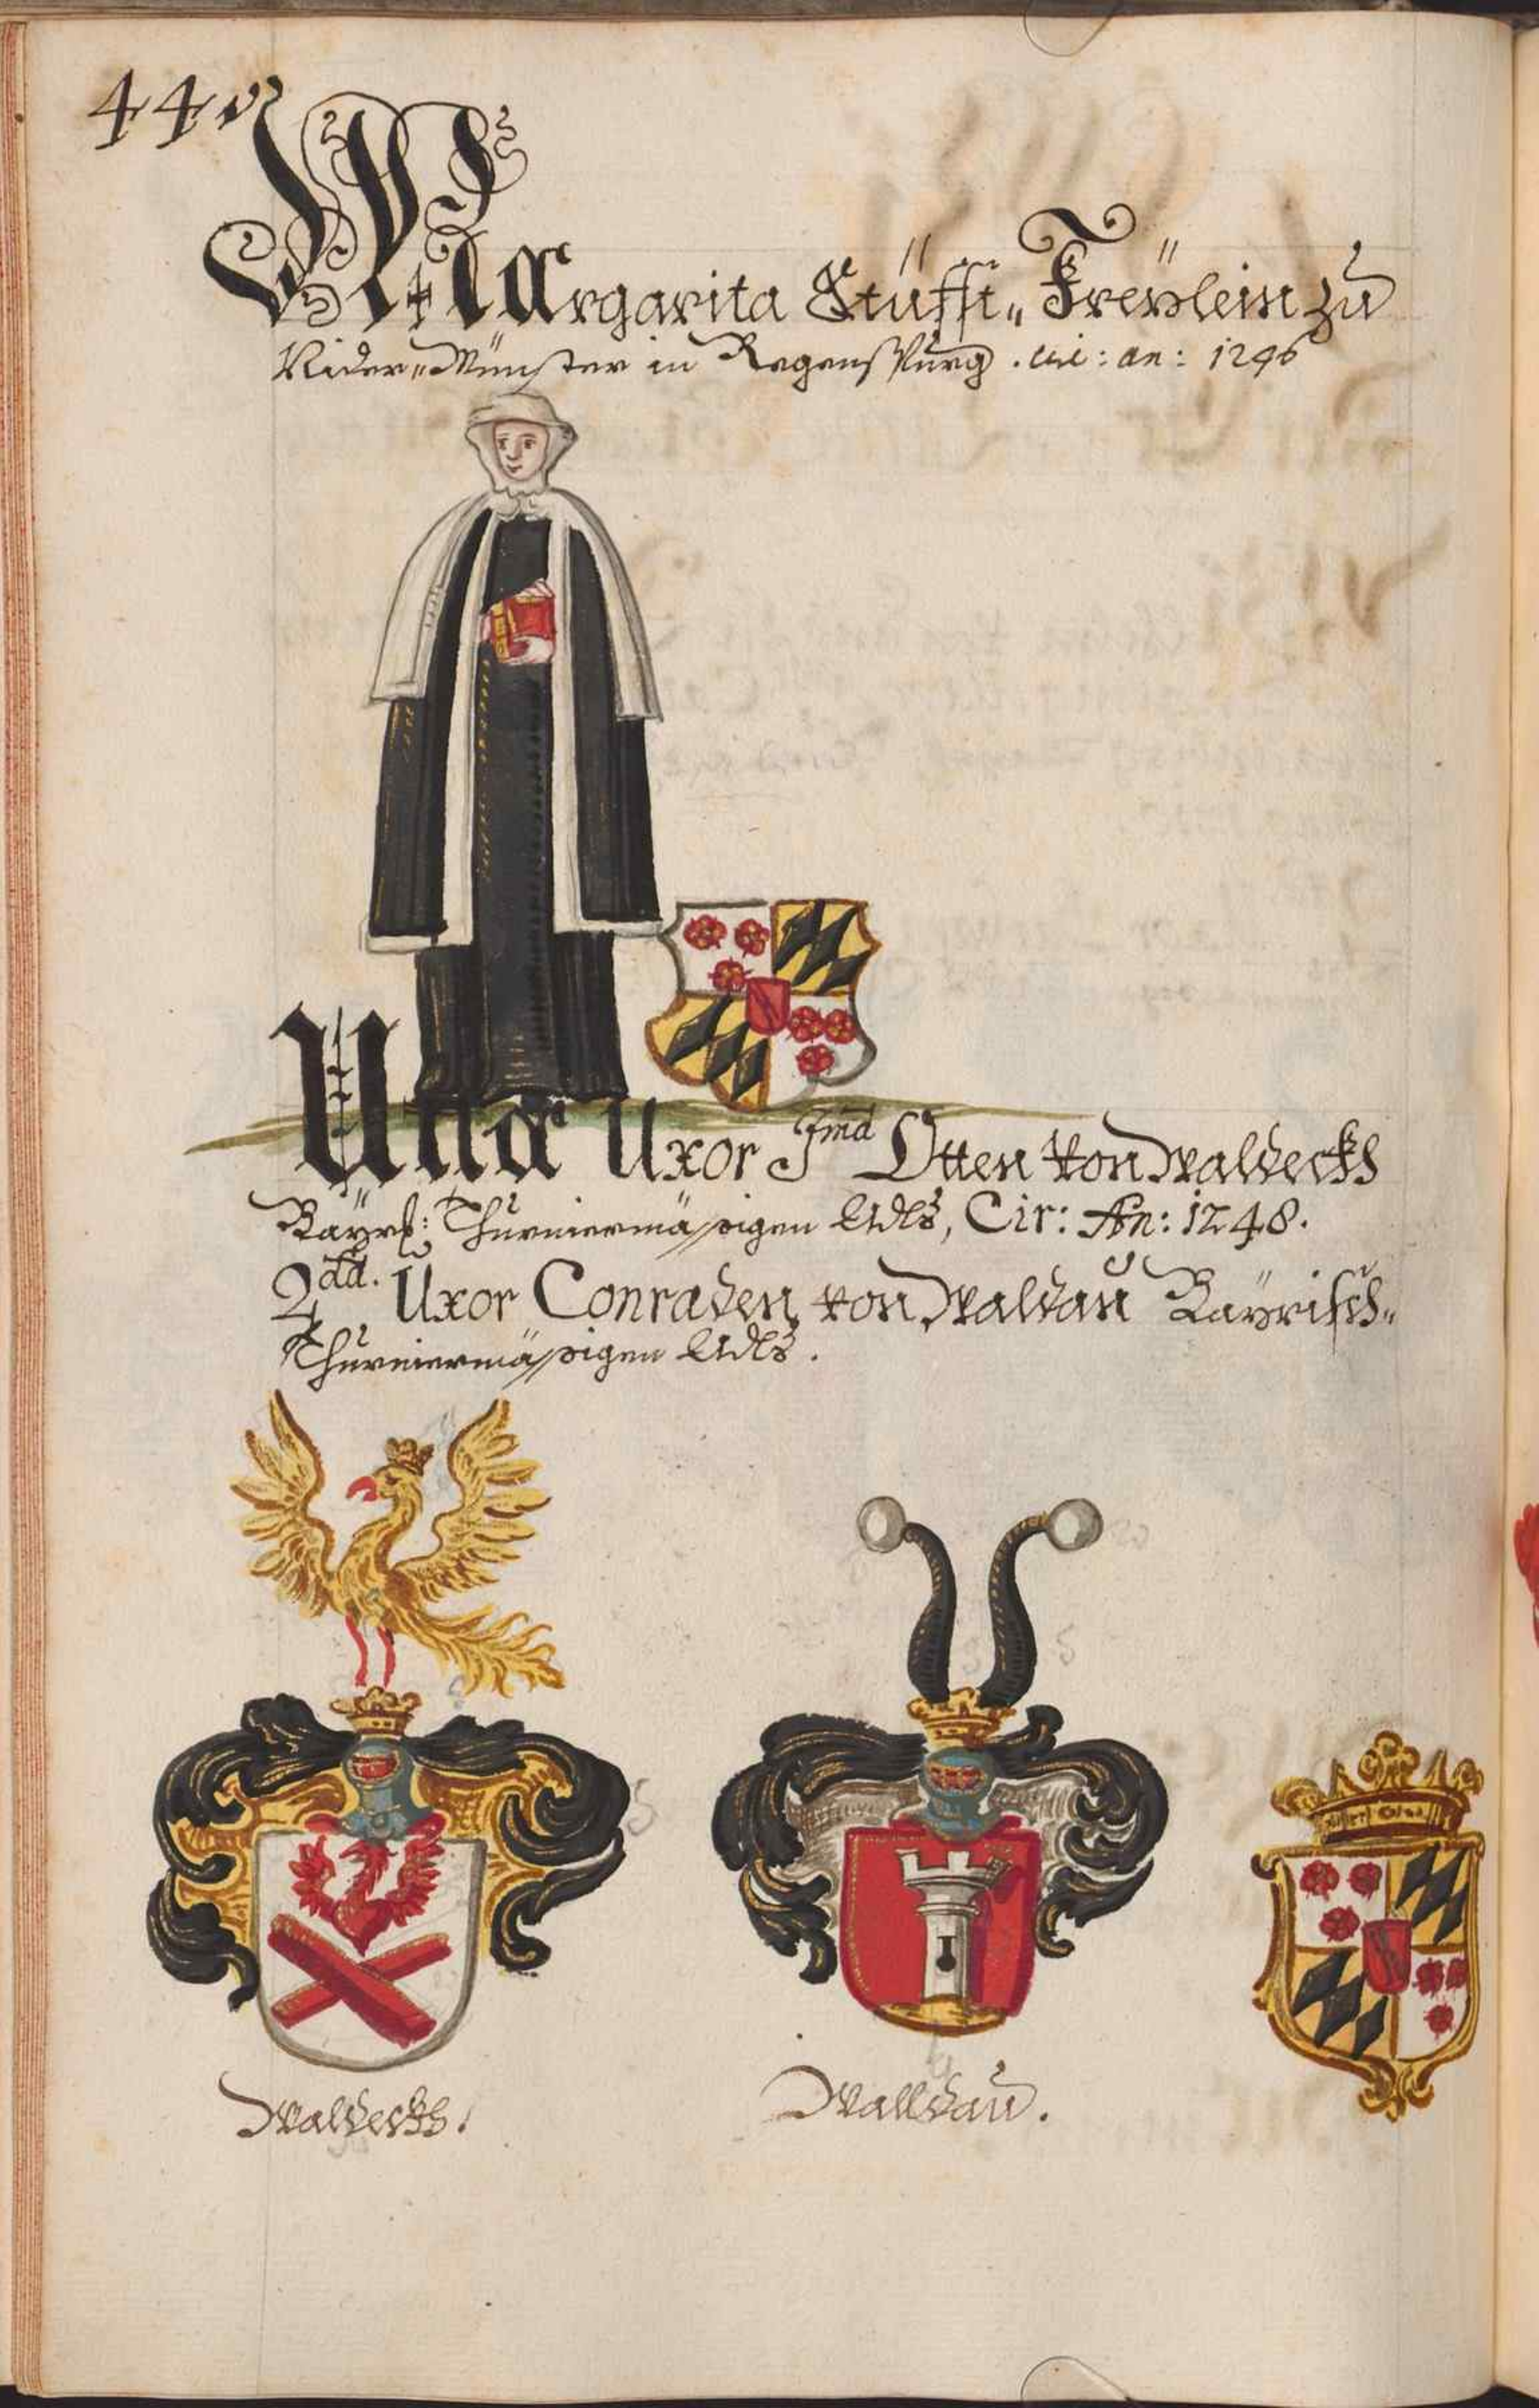 44
Margarita Stüfft„ Freÿlein zu
Nider„Münster in Regenspurg. Cir: an: 1246
Una Uxor Jmd Otten von Waldeckh
Baÿrl: Thurniermässigen Adls, Cir: An: 1248.
2dd. Uxor Conraden von Waldau Baÿrisch„
Thurniermässigen Adls.
Waldeckh.
Walldau.